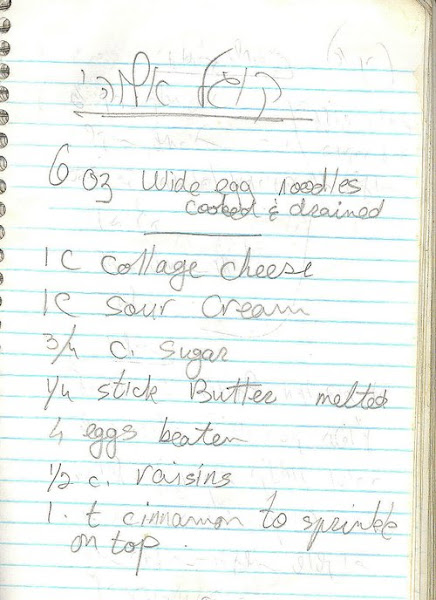 6 oz wide egg noodles
cooked & drained
1 C Cottage cheese
1 C Sour Cream
3/4 c. sugar
1/4 stick Butter melted
4 eggs beaten
1/2 c. raisins
1. t cinnamon to sprinkle
on top.